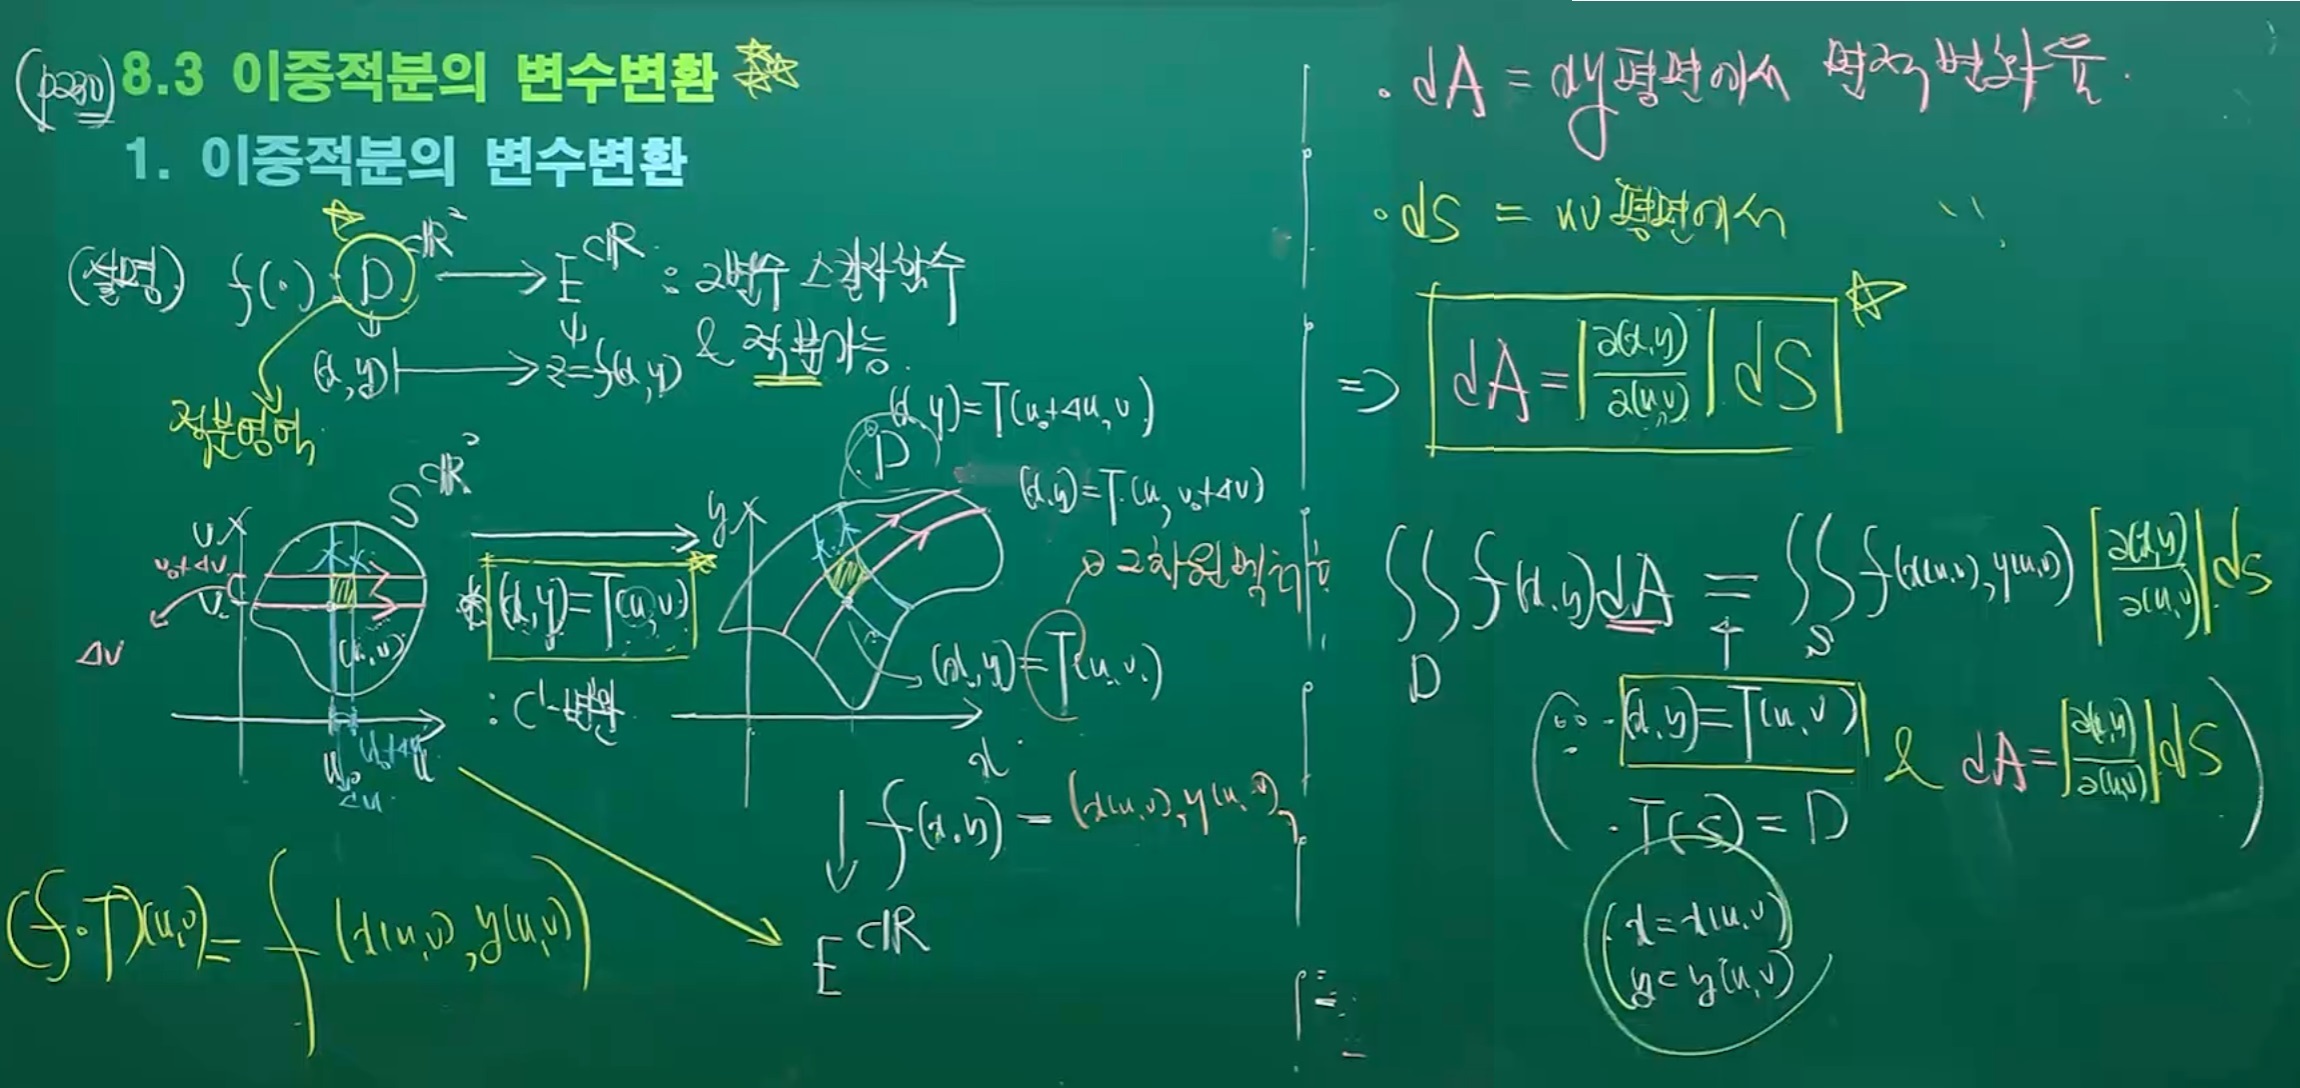 (p230) 8.3 이중적분의 변수변환
1. 이중적분의 변수변환
(설명) f(·) : D ⊂ℝ² → E ⊂ℝ : 2변수 스칼라함수
(x,y) ↦ z=f(x,y) & 적분가능.
적분영역
S ⊂ℝ²
v
v₀+Δv
v₀
Δv
(u₀,v₀)
u₀
u₀+Δu
u
Δu
(x,y)=T(u,v)
: C¹-변환
y
D
(x,y)=T(u₀+Δu, v)
(x,y)=T(u, v₀+Δv)
(x,y)=T(u₀,v₀)
x
↓ f(x,y) = (x(u,v), y(u,v))
E ⊂ℝ
(f∘T)(u,v) = f(x(u,v), y(u,v))
· dA = xy평면에서 면적변화율.
· dS = uv평면에서 〃
⇒ dA = |∂(x,y)/∂(u,v)| dS
∬_D f(x,y) dA = ∬_S f(x(u,v), y(u,v)) |∂(x,y)/∂(u,v)| dS
(∵ · (x,y)=T(u,v) & dA = |∂(x,y)/∂(u,v)| dS)
· T(S) = D
x = x(u,v)
y = y(u,v)